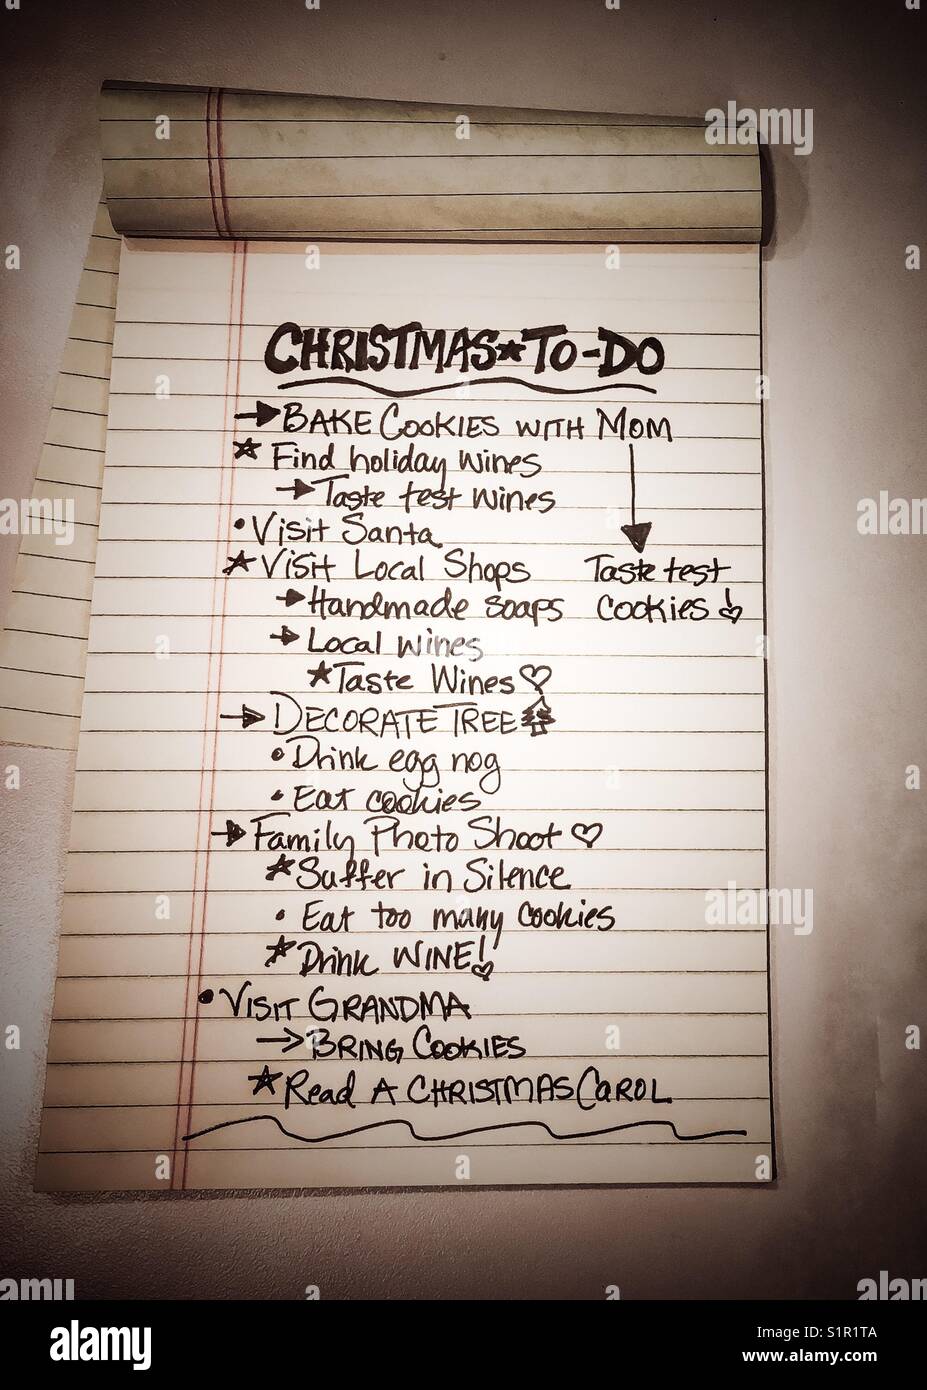 CHRISTMAS★TO-DO
→BAKE COOKIES WITH MOM
★ Find holiday wines
→Taste test wines
•Visit Santa
★Visit Local Shops
→Handmade soaps
→Local wines
★Taste Wines♡
Taste test
cookies!
→DECORATE TREE
•Drink egg nog
•Eat cookies
→Family Photo Shoot♡
★Suffer in Silence
•Eat too many cookies
★Drink WINE!
•VISIT GRANDMA
→BRING COOKIES
★Read A CHRISTMAS CAROL
alamy
alamy
alamy
alamy
alamy
alamy
alamy
alamy
Image ID: S1R1TA
www.alamy.com